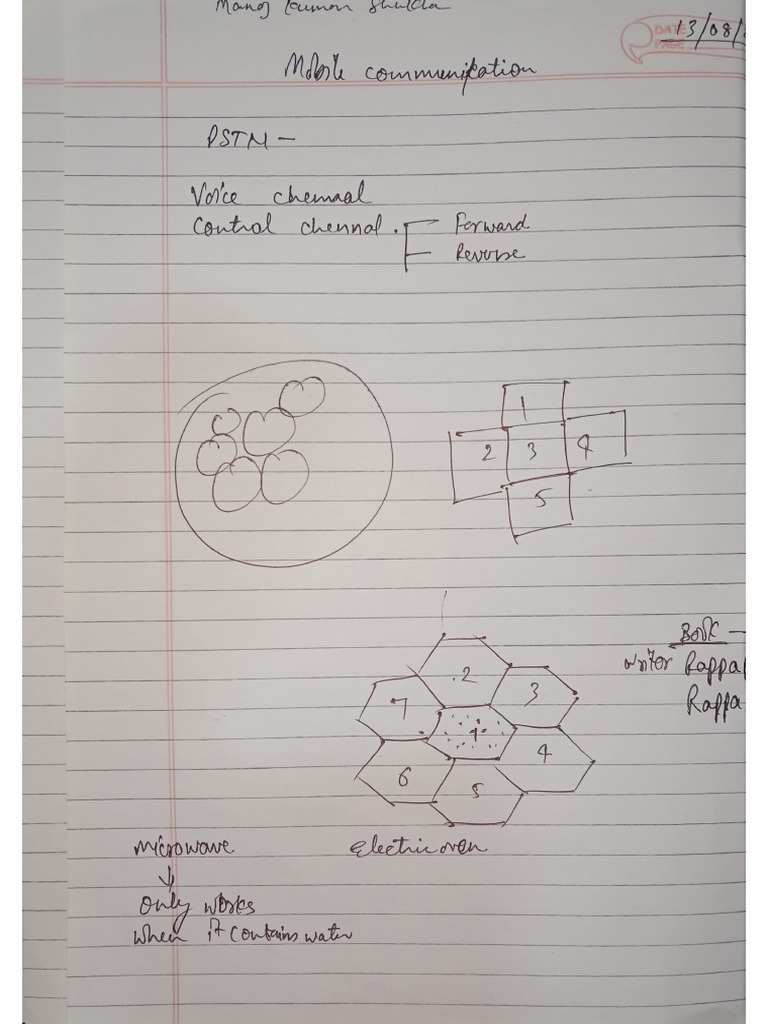 Manoj Kumar Shukla
DATE 13/08/
PAGE
Mobile communication
PSTN -
Voice chennal
Control chennal. Forward
Reverse
1
2 3 4
5
Book -
writer Rappa
Rappa
2
7 3
1
6 4
5
microwave Electric oven
only works
when it contains water